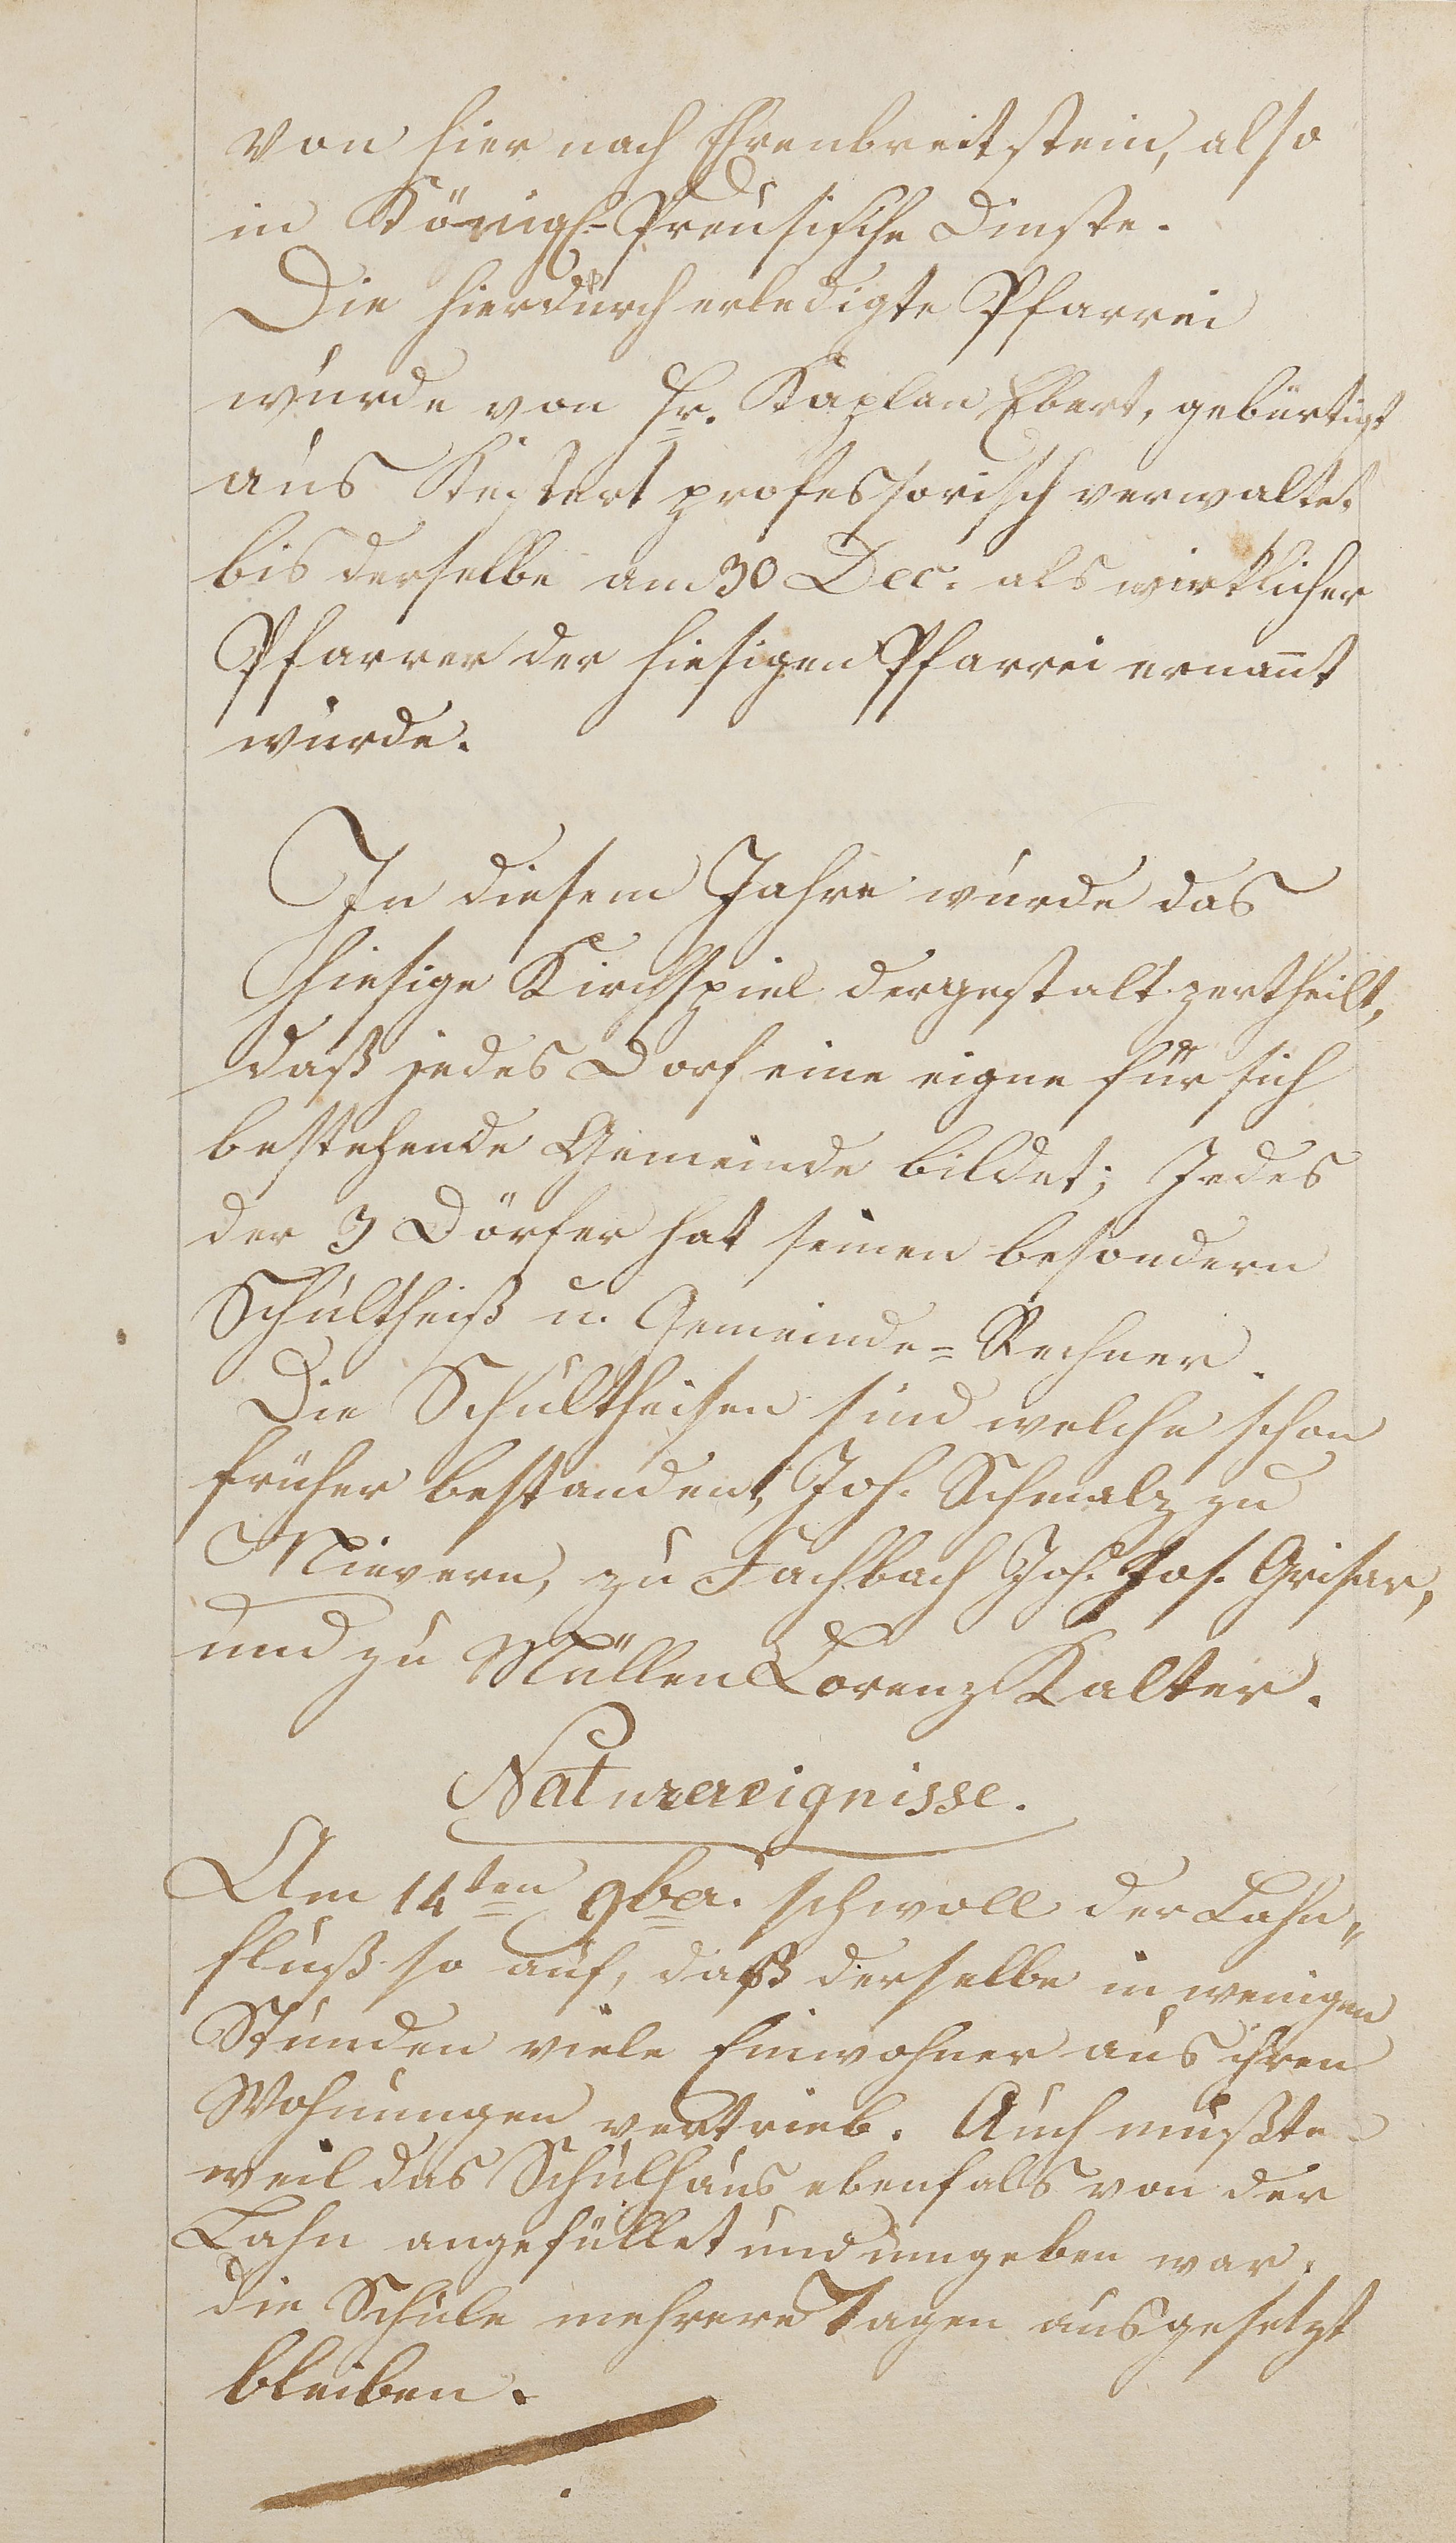 von hier nach Ehrenbreitstein, also
in Königl-Preusische Dinste.
Die hierdurch erledigte Pfarrei
wurde von Hr. Kaplan Ebert, gebürtigt
aus Kestert professorisch verwaltet
bis derselbe am 30 Dec: als wirklicher
Pfarrer der hiesigen Pfarrei ernan̄t
wurde.
In diesem Jahre wurde das
hiesige Kirchspiel dergestalt zertheilt,
daß jedes Dorf eine eigne für sich
bestehende Gemeinde bildet; Jedes
der 3 Dörfer hat seinen besondern
Schultheiß u. Gemeinde=Rechner.
Die Schultheisen sind welche schon
früher bestanden, Joh. Schmalz zu
Nievern, zu Fachbach Joh. Jos. Grisar,
und zu Müllen Lorenz Kalter.
Naturereignisse.
Am 14ten 9ber. schwoll der Lahn„
fluß so auf, daß derselbe in wenigen
Stunden viele Einwohner aus ihren
Wohnungen vertrieb. Auch mußte
weil das Schulhaus ebenfals von der
Lahn angefüllet und umgeben war,
die Schule mehrere Tagen ausgesetzt
bleiben.